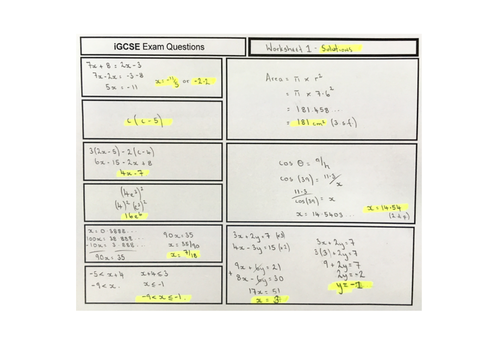 iGCSE Exam Questions
Worksheet 1 - Solutions
7x + 8 = 2x - 3
7x - 2x = -3 - 8
5x = -11
x = -11/5 or -2.2
c(c - 5)
3(2x - 5) - 2(x - 4)
6x - 15 - 2x + 8
4x - 7
(4e³)²
(4)² (e³)²
16e⁶
x = 0.3888...
100x = 38.888...
-10x = 3.888...
90x = 35
90x = 35
x = 35/90
x = 7/18
-5 < x + 4
-9 < x
x + 4 ≤ 3
x ≤ -1
-9 < x ≤ -1
Area = π × r²
= π × 7.6²
= 181.458...
= 181 cm² (3 s.f.)
cos θ = a/h
cos (39) = 11.3/x
11.3/cos(39) = x
x = 14.5405...
x = 14.54
(2 d.p)
3x + 2y = 7 (×3)
4x - 3y = 15 (×2)
9x + 6y = 21
+ 8x - 6y = 30
17x = 51
x = 3
3x + 2y = 7
3(3) + 2y = 7
9 + 2y = 7
2y = -2
y = -1